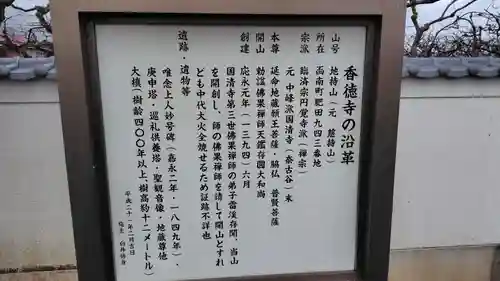 香徳寺の沿革
山号 地持山（元 慈持山）
所在 函南町肥田九四三番地
宗派 臨済宗円覚寺派（禅宗）
元 中峰派国清寺（奈古谷）末
本尊 延命地蔵願王菩薩・脇仏 普賢菩薩
開山 勅諡佛果禅師天鑑存圓大和尚
創建 応永元年（一三九四）六月
国清寺第三世佛果禅師の弟子雷渓存聞、当山
を開創し、師の佛果禅師を請して開山とすれ
ども中代大火全焼せるため証跡不詳也
遺跡・遺物等
唯念上人妙号碑（嘉永二年・一八四九年）、
庚申塔・巡礼供養塔・聖観音像・地蔵尊他
大槙（樹齢四〇〇年以上、樹高約十二メートル）
平成二十一年二月吉日